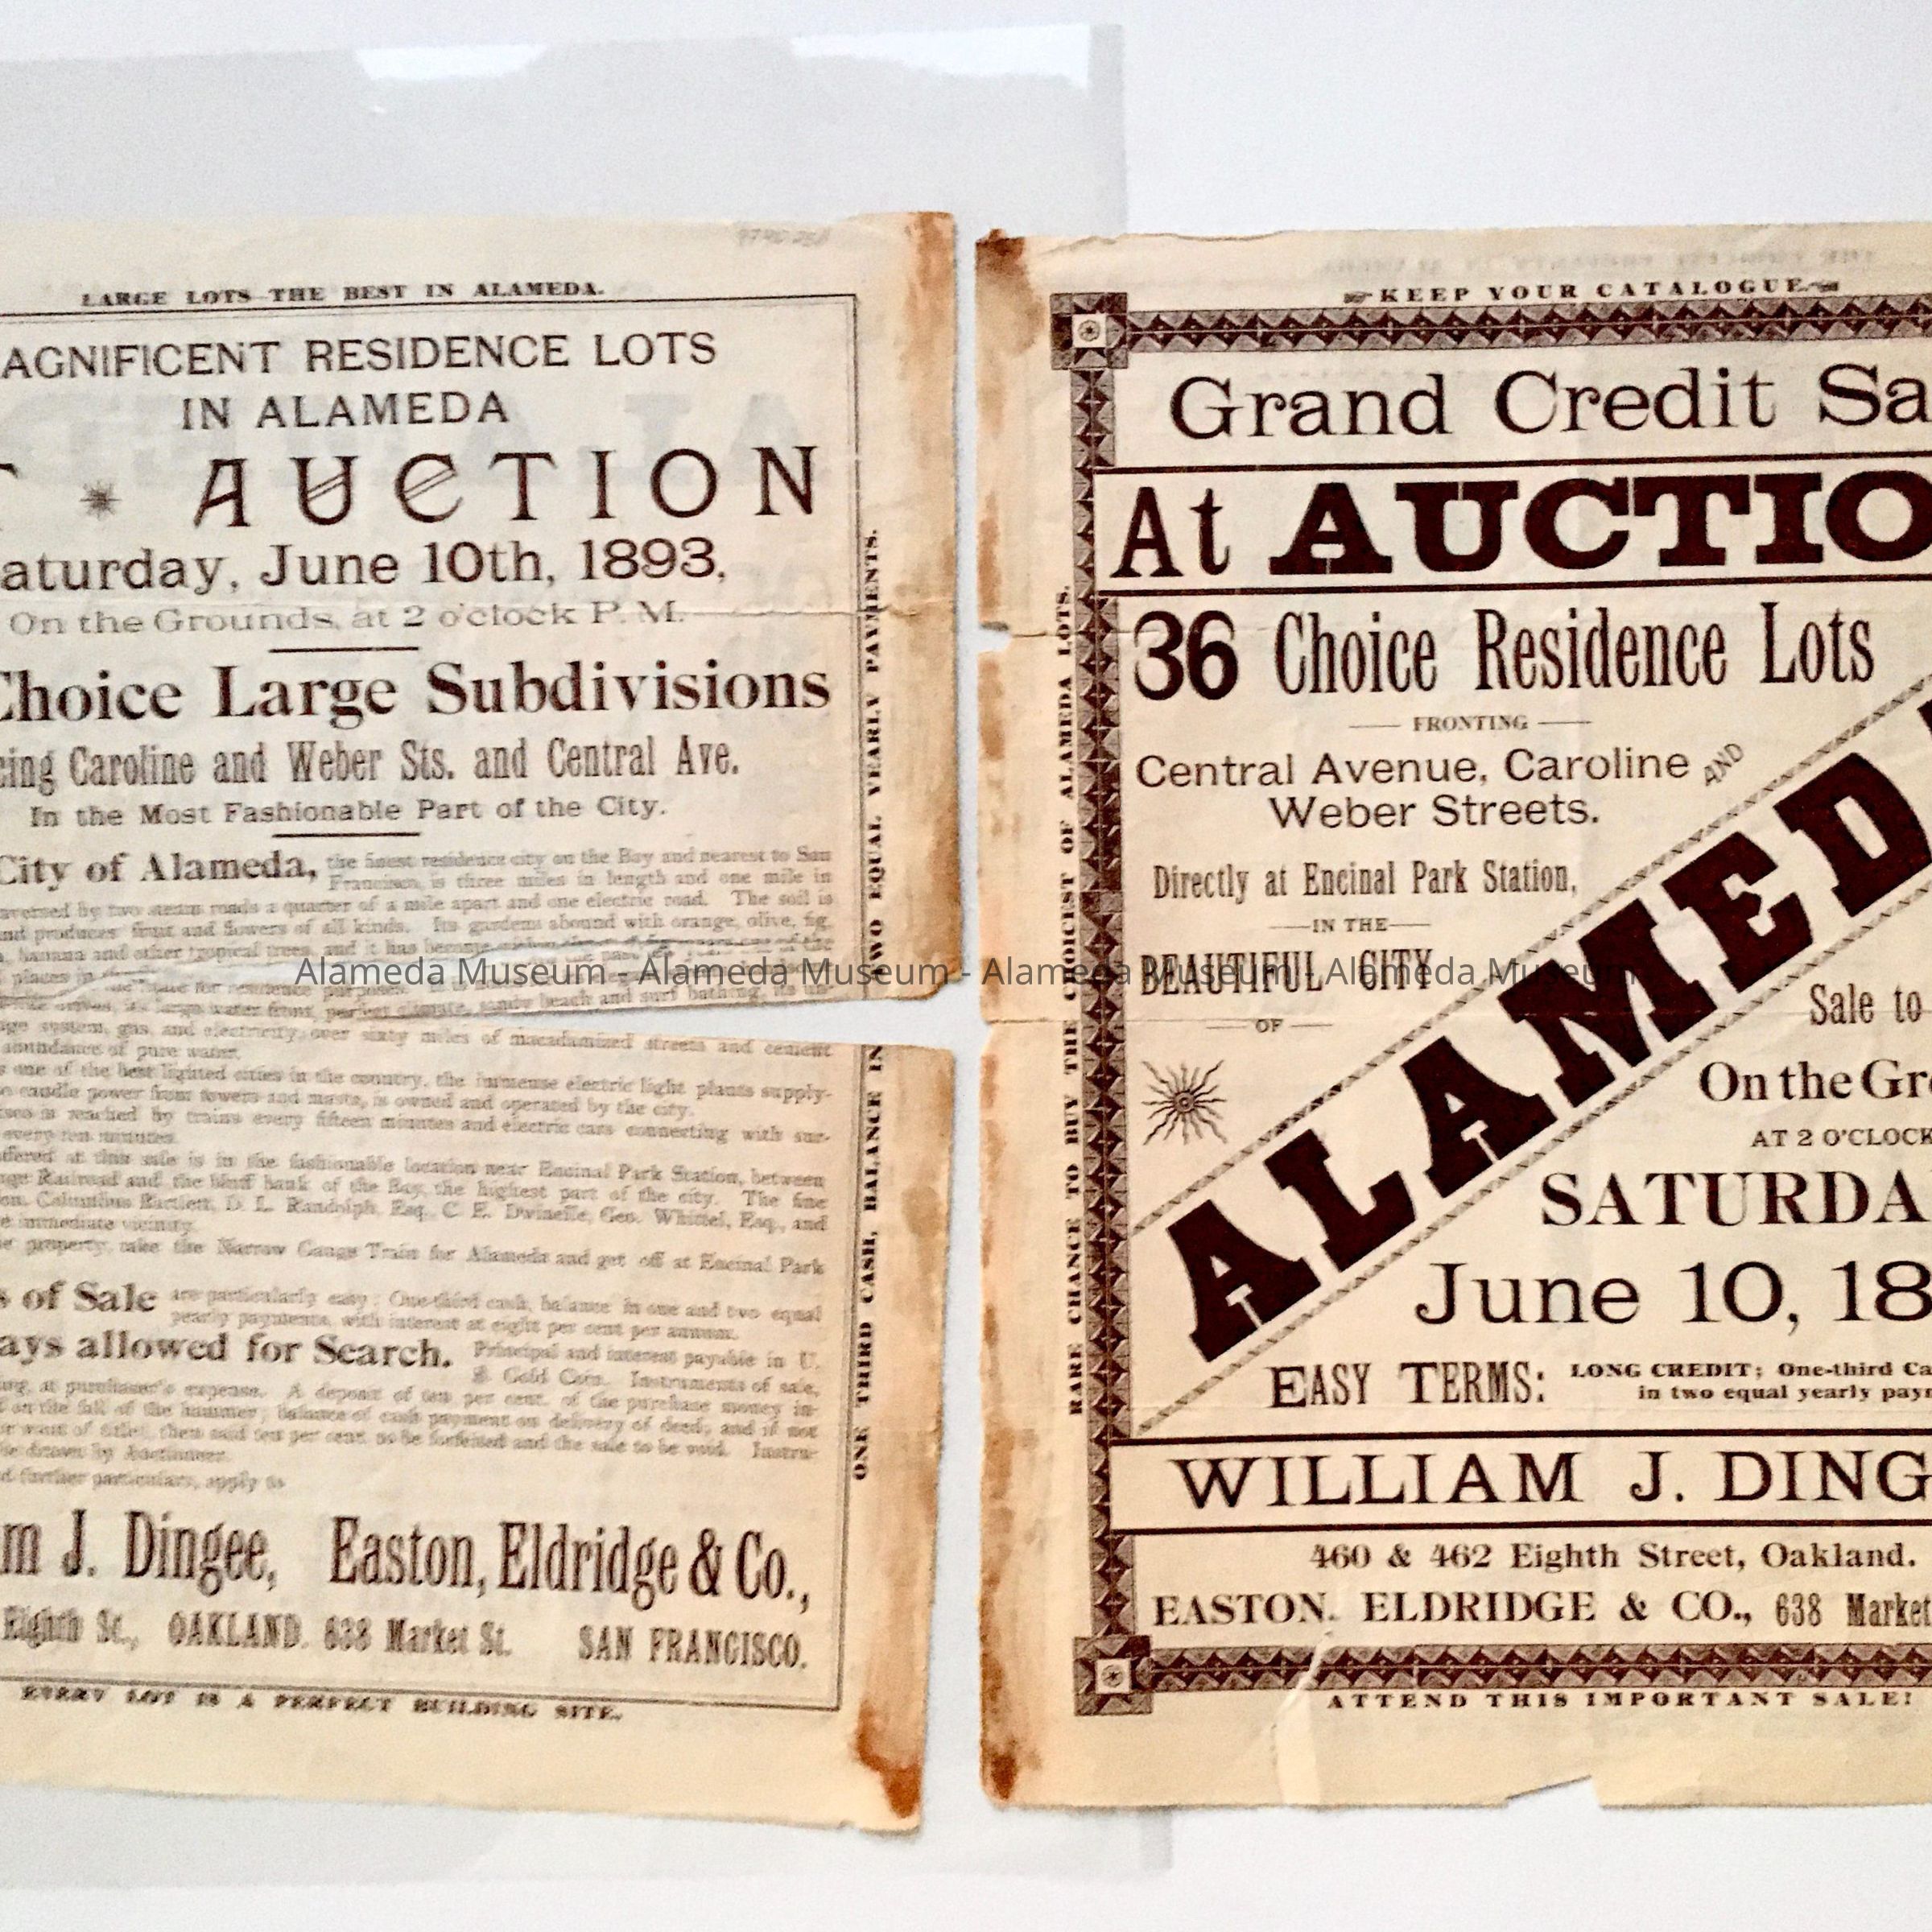 LARGE LOTS THE BEST IN ALAMEDA.
AGNIFICENT RESIDENCE LOTS
IN ALAMEDA
T * AUCTION
aturday, June 10th, 1893,
On the Grounds, at 2 o'clock P. M.
Choice Large Subdivisions
cing Caroline and Weber Sts. and Central Ave.
In the Most Fashionable Part of the City.
City of Alameda, the finest residence city on the Bay and nearest to San
Francisco, is three miles in length and one mile in
aversed by two steam roads a quarter of a mile apart and one electric road. The soil is
and produces fruit and flowers of all kinds. Its gardens abound with orange, olive, fig,
banana and other tropical trees, and it has become
places in
for residence purposes.
drives, its large water front, perfect climate, sandy beach and surf bathing, its
age system, gas and electricity, over sixty miles of macadamized streets and cement
abundance of pure water.
s one of the best lighted cities in the country, the immense electric light plants supply-
candle power from towers and masts, is owned and operated by the city.
sco is reached by trains every fifteen minutes and electric cars connecting with
every ten minutes.
offered at this sale is in the fashionable location near Encinal Park Station, between
ge Railroad and the bluff bank of the Bay, the highest part of the city. The fine
on. Columbus Bartlett, D. L. Randolph, Esq., C. E. Dwinelle, Geo. Whittel, Esq., and
e immediate vicinity.
e property, take the Narrow Gauge Train for Alameda and get off at Encinal Park
s of Sale are particularly easy: One-third cash, balance in one and two equal
yearly payments, with interest at eight per cent per annum.
ays allowed for Search. Principal and interest payable in U.
S. Gold Coin. Instruments of sale,
ing, at purchaser's expense. A deposit of ten per cent. of the purchase money in-
on the fall of the hammer; balance of cash payment on delivery of deed; and if not
or want of title), then said ten per cent. to be forfeited and the sale to be void. Instru-
be drawn by Auctioneer.
d further particulars, apply to
m J. Dingee, Easton, Eldridge & Co.,
Eighth St., OAKLAND. 638 Market St. SAN FRANCISCO.
EVERY LOT IS A PERFECT BUILDING SITE.
ONE THIRD CASH, BALANCE IN TWO EQUAL YEARLY PAYMENTS.
KEEP YOUR CATALOGUE.
RARE CHANCE TO BUY THE CHOICEST OF ALAMEDA LOTS.
Grand Credit Sa
At AUCTIO
36 Choice Residence Lots
FRONTING
Central Avenue, Caroline AND
Weber Streets.
Directly at Encinal Park Station,
IN THE
BEAUTIFUL CITY
OF
ALAMED
Sale to
On the Gr
AT 2 O'CLOCK
SATURDA
June 10, 18
EASY TERMS: LONG CREDIT; One-third Ca
in two equal yearly payn
WILLIAM J. DING
460 & 462 Eighth Street, Oakland.
EASTON, ELDRIDGE & CO., 638 Market
ATTEND THIS IMPORTANT SALE!
Alameda Museum - Alameda Museum - Alameda Museum - Alameda Museum